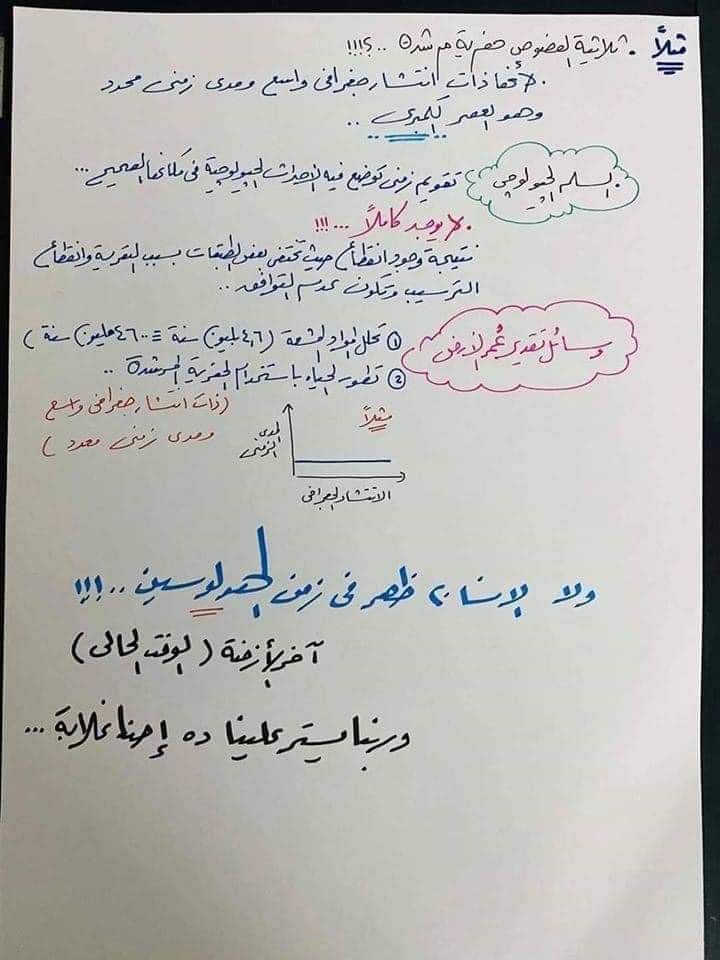 مثلاً • ثلاثية الفصوص حفرية مرشدة ..؟!!!
• لأنها ذات انتشار جغرافى واسع ومدى زمنى محدد
وهو العصر الكمبرى ..
السلم الجيولوجى
تقويم زمنى توضع فيه الأحداث الجيولوجية فى مكانها الصحيح ...
• لا يوجد كاملاً ... !!!
نتيجة وجود انقطاع حيث تختفى بعض الطبقات بسبب التعرية وانقطاع
الترسيب وتكون عدم التوافق ..
وسائل تقدير عُمر الأرض
① تحلل المواد المشعة (٤,٦ بليون سنة ≡ ٤٦٠٠ مليون سنة)
② تطور الحياه باستخدام الحفرية المرشدة ..
(ذات انتشار جغرافى واسع
ومدى زمنى محدد)
مثلاً
المدى الزمنى
الانتشار الجغرافى
ولا الإنسان ظهر فى زمن الهولوسين ..!!!
آخر الأزمنة (الوقت الحالى)
وربنا يستر علينا ده إحنا غلابة ...